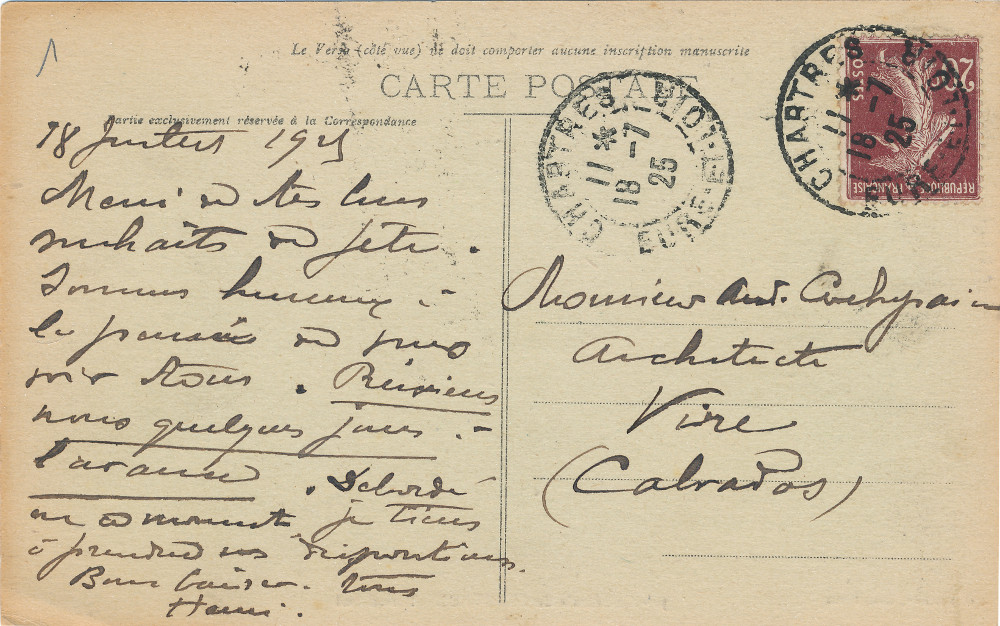 Le Verso (côté vue) ne doit comporter aucune inscription manuscrite
CARTE POSTALE
Partie exclusivement réservée à la Correspondance
18 Juillet 1925
Merci de tes bons
souhaits de fête.
Sommes heureux à
la pensée de vous
voir tous. Préviens
nous quelques jours à
l'avance. Débordé
en ce moment je tiens
à prendre mes dispositions.
Bons baisers tous
Henri.
CHARTRES
11
18-7
25
EURE-E
CHARTRES
11
18-7
25
20
POSTES
REPUBLIQUE FRANÇAISE
Monsieur
Architecte
Vire
(Calvados)